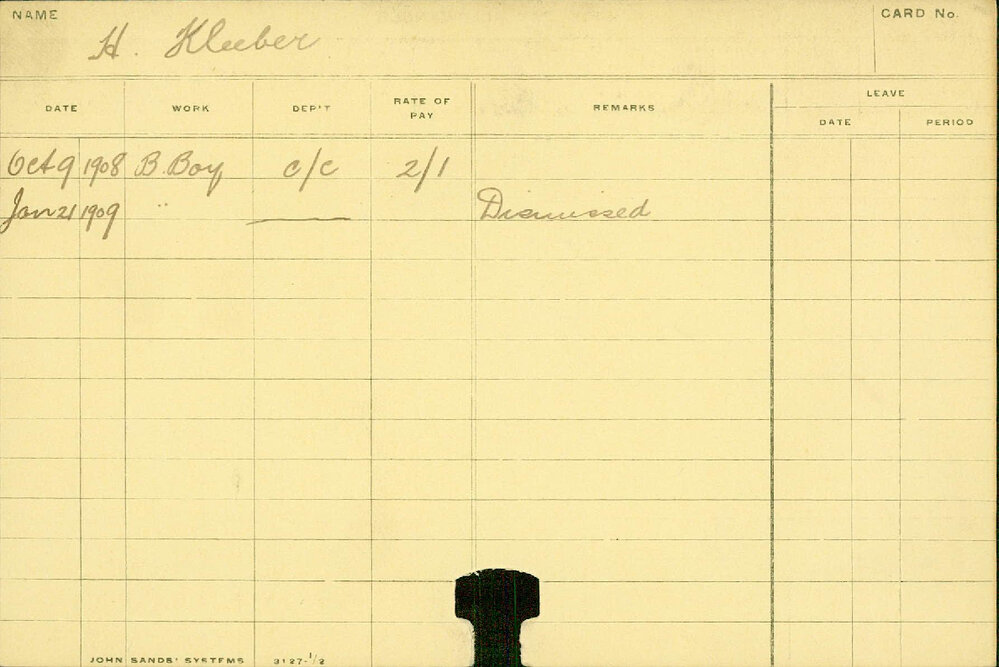 NAME H. Kleeber CARD No.
DATE WORK DEP'T RATE OF PAY REMARKS LEAVE
DATE PERIOD
Oct 9 1908 B. Boy c/c 2/1
Jan 21 1909 " —— Dismissed
JOHN SANDS' SYSTEMS 3127-1/2